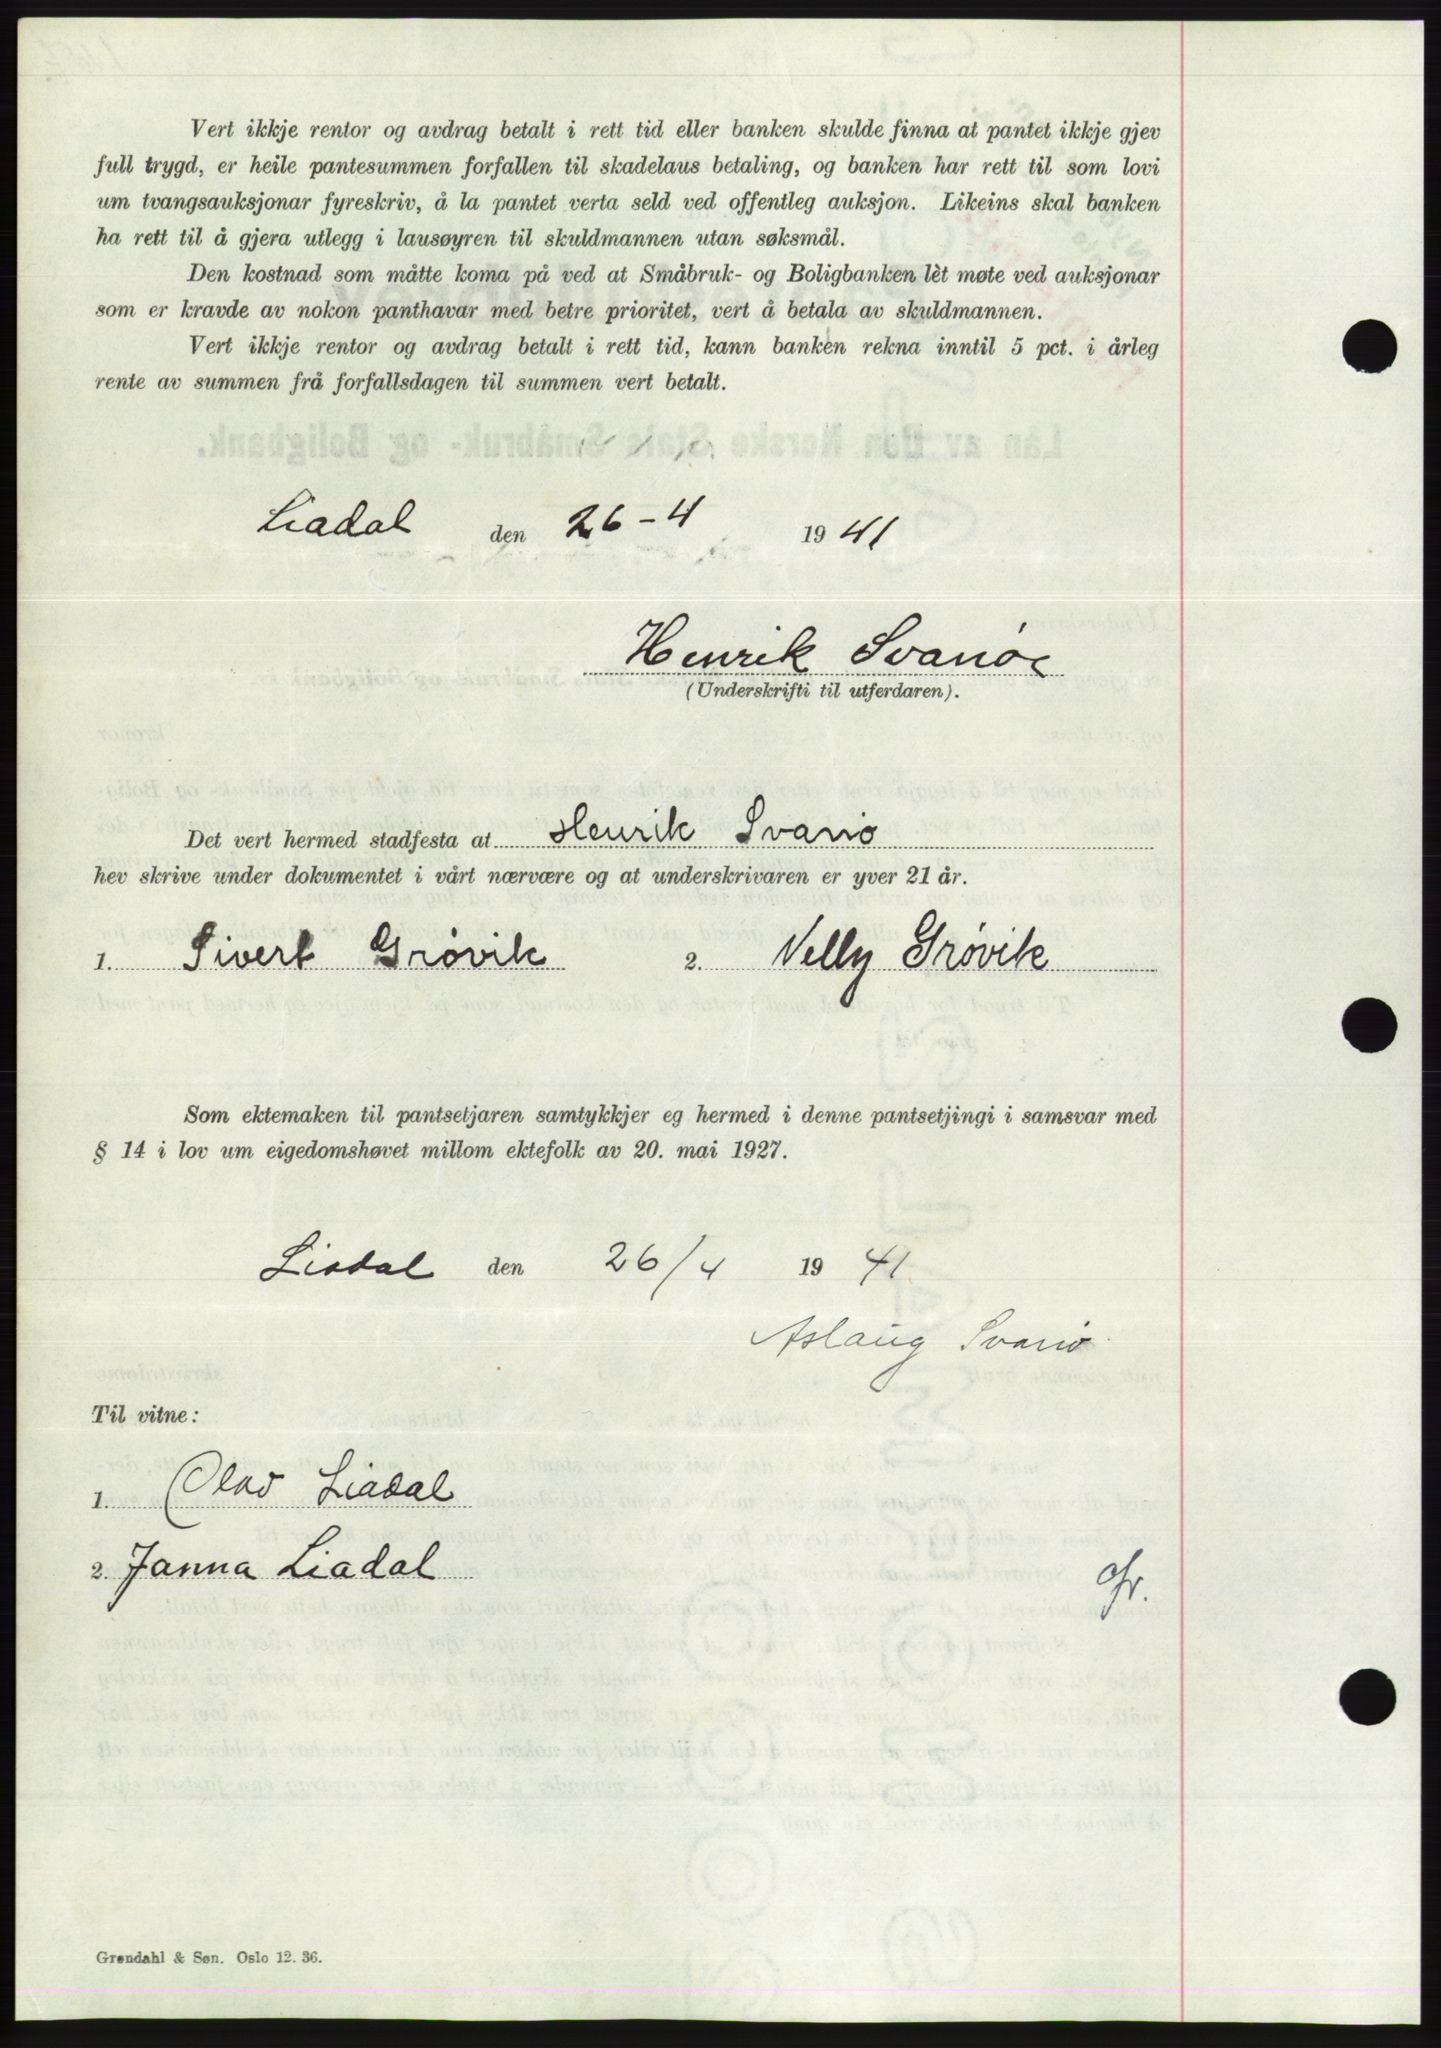 Vert ikkje rentor og avdrag betalt i rett tid eller banken skulde finna at pantet ikkje gjev
full trygd, er heile pantesummen forfallen til skadelaus betaling, og banken har rett til som lovi
um tvangsauksjonar fyreskriv, å la pantet verta seld ved offentleg auksjon. Likeins skal banken
ha rett til å gjera utlegg i lausøyren til skuldmannen utan søksmål.
Den kostnad som måtte koma på ved at Småbruk- og Boligbanken lèt møte ved auksjonar
som er kravde av nokon panthavar med betre prioritet, vert å betala av skuldmannen.
Vert ikkje rentor og avdrag betalt i rett tid, kann banken rekna inntil 5 pct. i årleg
rente av summen frå forfallsdagen til summen vert betalt.
Liadal den 26-4 1941
Henrik Svanøe
(Underskrifti til utferdaren).
Det vert hermed stadfesta at Henrik Svanø
hev skrive under dokumentet i vårt nærvære og at underskrivaren er yver 21 år.
1. Sivert Grøvik 2. Nelly Grøvik
Som ektemaken til pantsetjaren samtykkjer eg hermed i denne pantsetjingi i samsvar med
§ 14 i lov um eigedomshøvet millom ektefolk av 20. mai 1927.
Liadal den 26/4 1941
Aslaug Svanø
Til vitne:
1. Olav Liadal
2. Janna Liadal
Grøndahl & Søn. Oslo 12. 36.